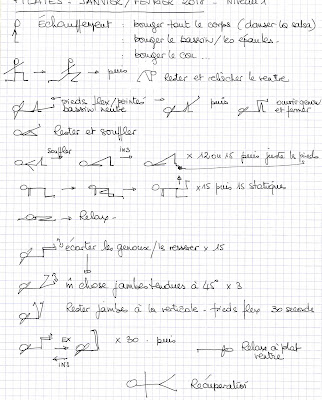 PILATES - JANVIER/FÉVRIER 2018 - NIVEAU 1
Échauffement : bouger tout le corps (danser la salsa)
: bouger le bassin/les épaules.
: bouger le cou...
puis Rester et relâcher le ventre
pieds flex/pointés puis ouvrir genou
bassin neutre et fermer
Rester et souffler
souffler INS × 12 ou 15 puis juste le pied
× 15 puis 15 statique
Relax.
écarter les genoux/le resserrer × 15
m chose jambes tendues à 45° × 3
Rester jambes à la verticale - pieds flex 30 secondes
EX × 30 puis Relax à plat
INS ventre
Récupération